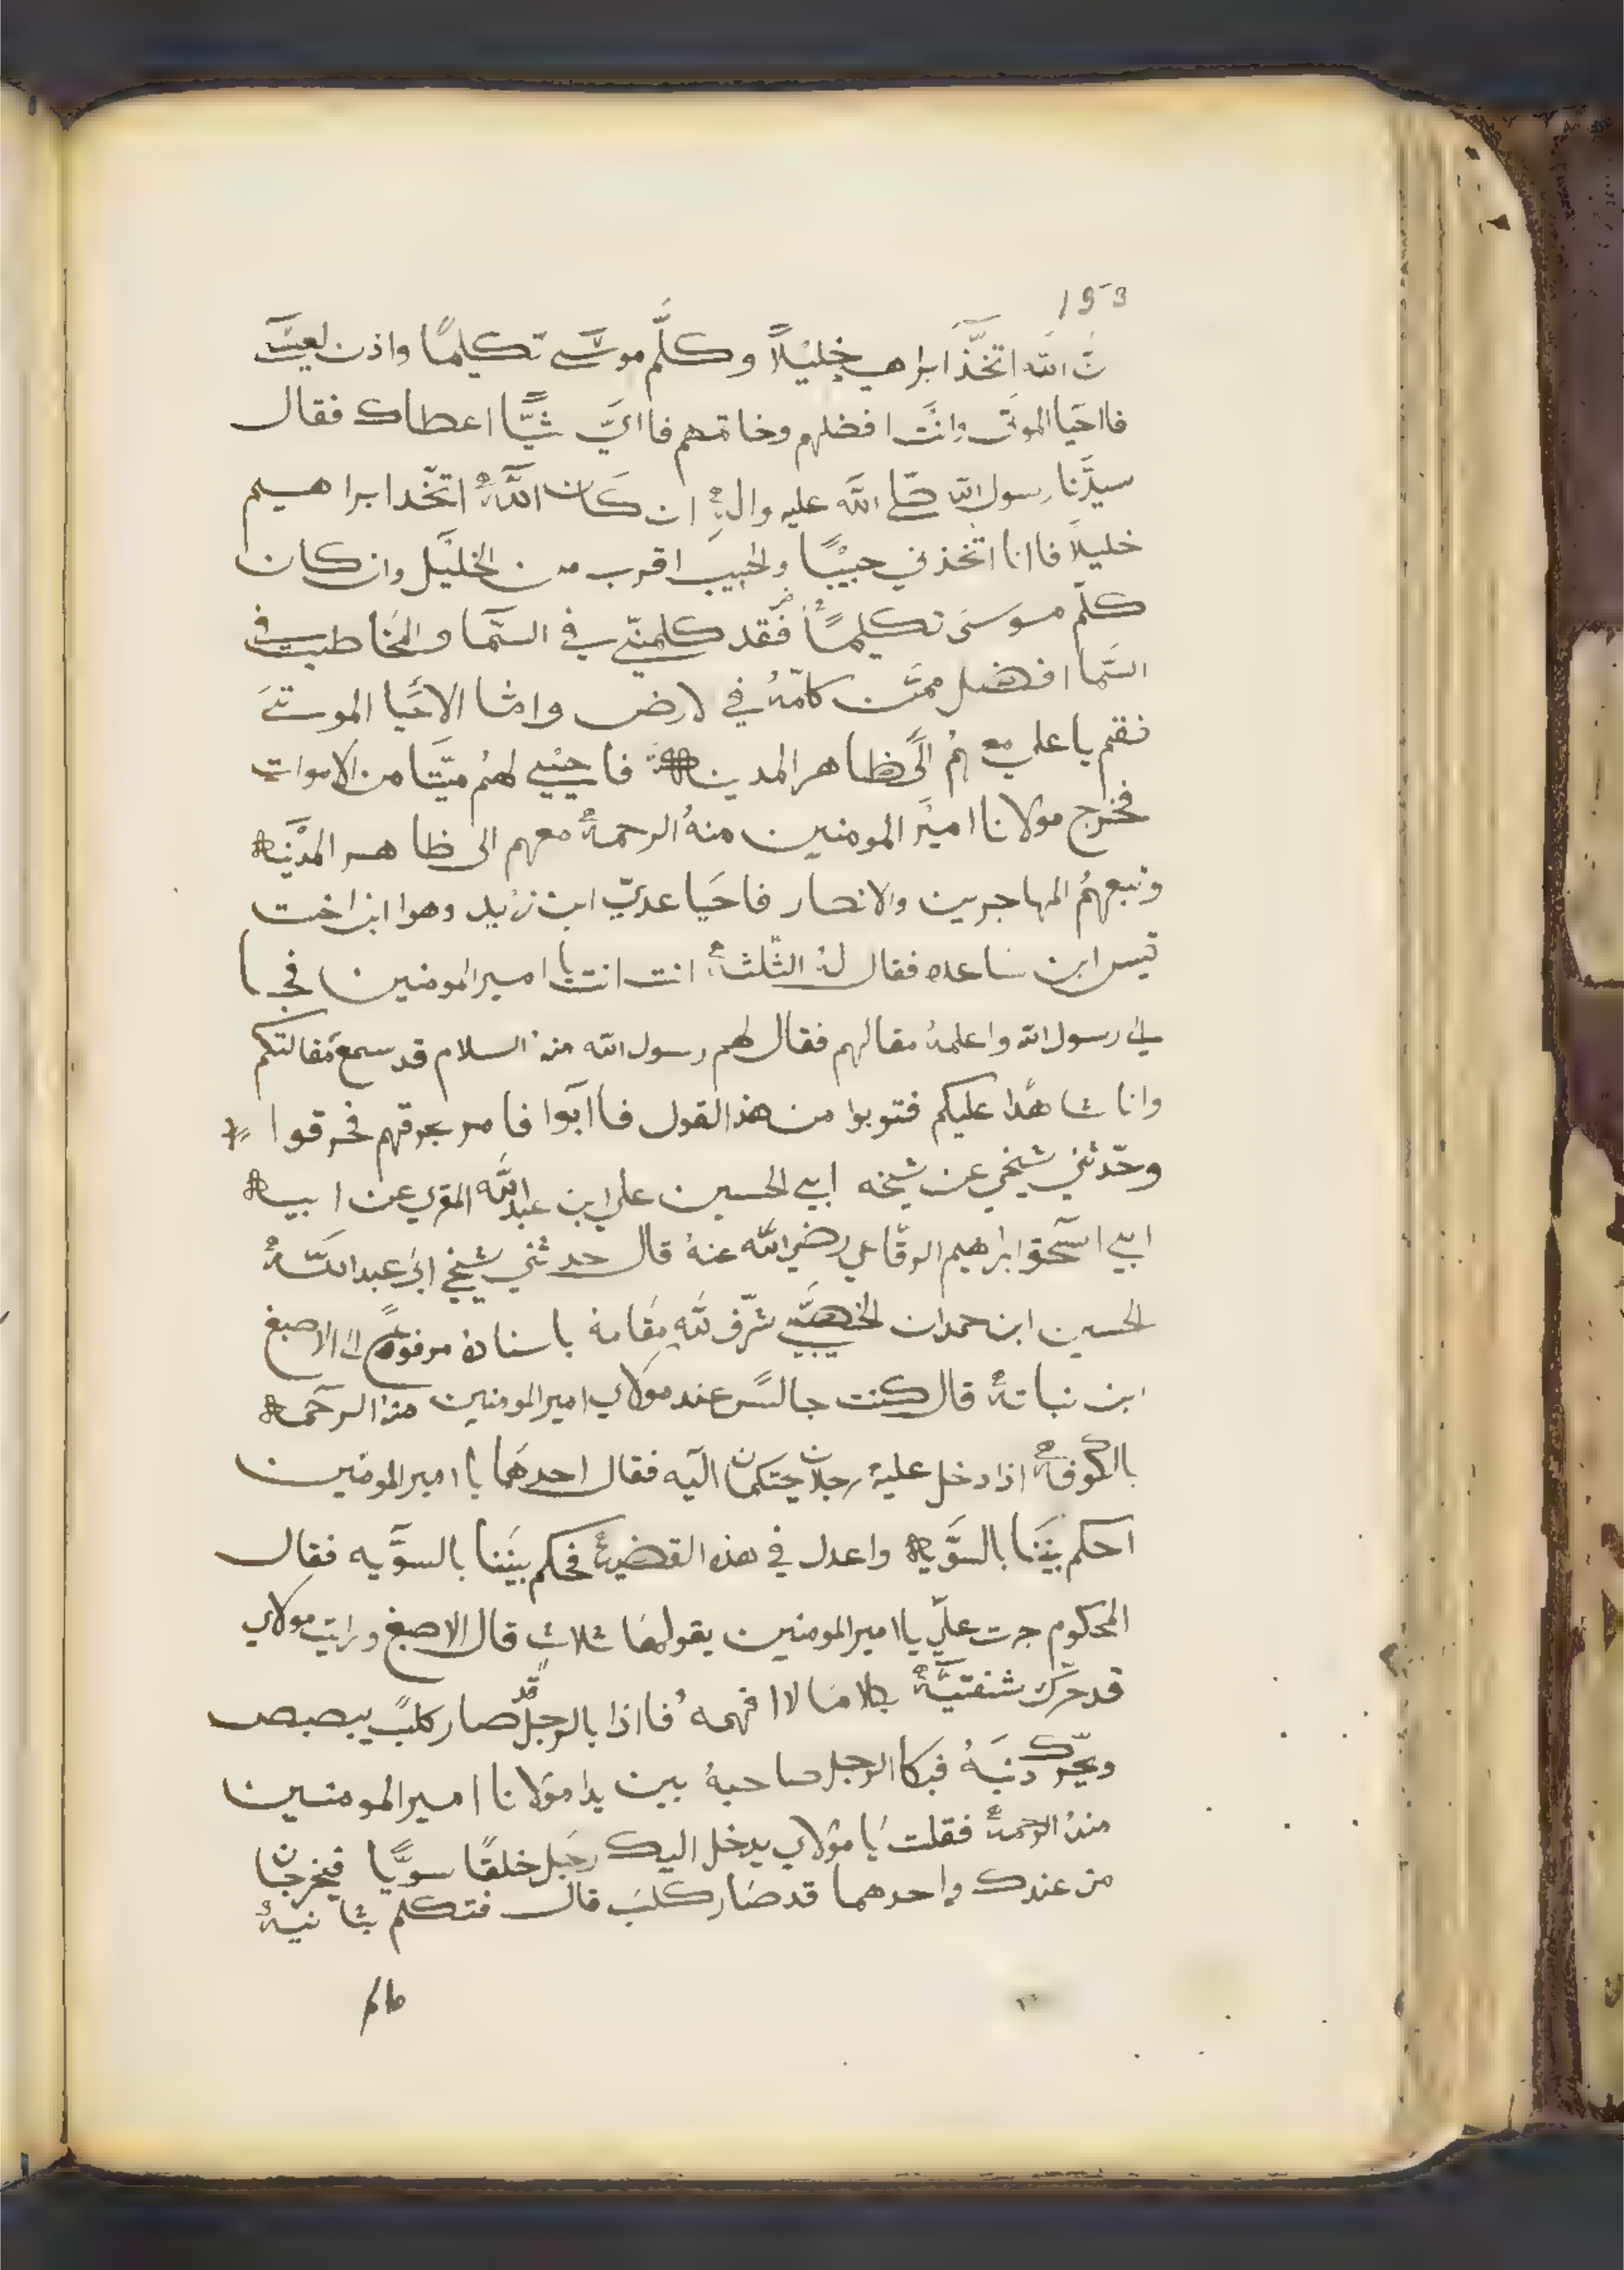 193
نّ الله اتخّذ ابراهيم خليلاً وكلّم موسَى تكليمًا واذن لعيسَى
فااحيا الموتى وانت افضلهم وخاتمهم فاايّ شيًّا اعطاك فقال
سيدّنا رسول الله صلّى الله عليه والهِ ان كان اللّهُ اتخّد ابراهيم
خليلاً فاانا اتخذني حبيبًا والحبيب اقرب من الخليل وان كان
كلّم موسىَ تكليمًا فقد كلمنّي في السّما والمخاطب في
السّما افضل ممّن كلّمهُ في لارض وامّا الاحَيا الموتىَ
فقم يا علي معهُم الىَ ظاهر المدينة فاحيي لهم ميّتا من الاموات
فخرج مولانا اميرَ المومنين منهُ الرحمةُ معهم الى ظاهر المدينة
وتبعهُم المهاجرين والانصار فاحَيا عديّ ابن زيد وهوا ابن اخت
قيس ابن ساعده فقال لهُ الثّلثةُ انت انت يا امير المومنين فجا
الى رسول الله واعلمهُ مقالهم فقال لهم رسول الله منهُ السلام قد سمع مقالتكم
وانا شاهدًا عليكم فتوبوا من هذ القول فاابَوا فامر بحرقهم فحرقوا
وحّدثني شيخي عن شيخه ابي الحسين علي ابن عبد اللّه المقري عن ابيه
ابي اسحَق ابراهيم الرقّاعي رضي اللّه عنهُ قال حدثني شيخي ابي عبد اللّهُ
الحسين ابن حمدان الخصيبَي شرّف للّه مقامهُ باسناده مرفوعًا الى الاصبغ
ابن نباتهُ قال كنت جالسًا عند مولاي امير المومنين منهُ الرحَمة
بالكوفةُ اذا دخل عليهُ رجلان يحتكمان اليَه فقال احدهمَا يا امير المومنين
احكم بيَننا بالسوَّية واعدل في هذه القضيةُ فحكم بيَننا بالسوَّيه فقال
المحكوم جرت عليّ يا امير المومنين يقولهَا ثلاث قال الاصبغ ورايت مولاي
قد حرّك شفتيّهُ بكلامَا لاافهمهُ فااذا بالرجل قد صار كلبً يبصبص
ويحّرك دنبَهُ فبَكا الرجل صاحبهُ بين يدا مولانا امير المومنين
منهُ الرحمةُ فقلت يَا مولاي يدخل اليك رجَل خلقًا سويًّا فيخرجان
من عندك واحدهما قد صَار كلبَ قال فتكلم بثانيهُ